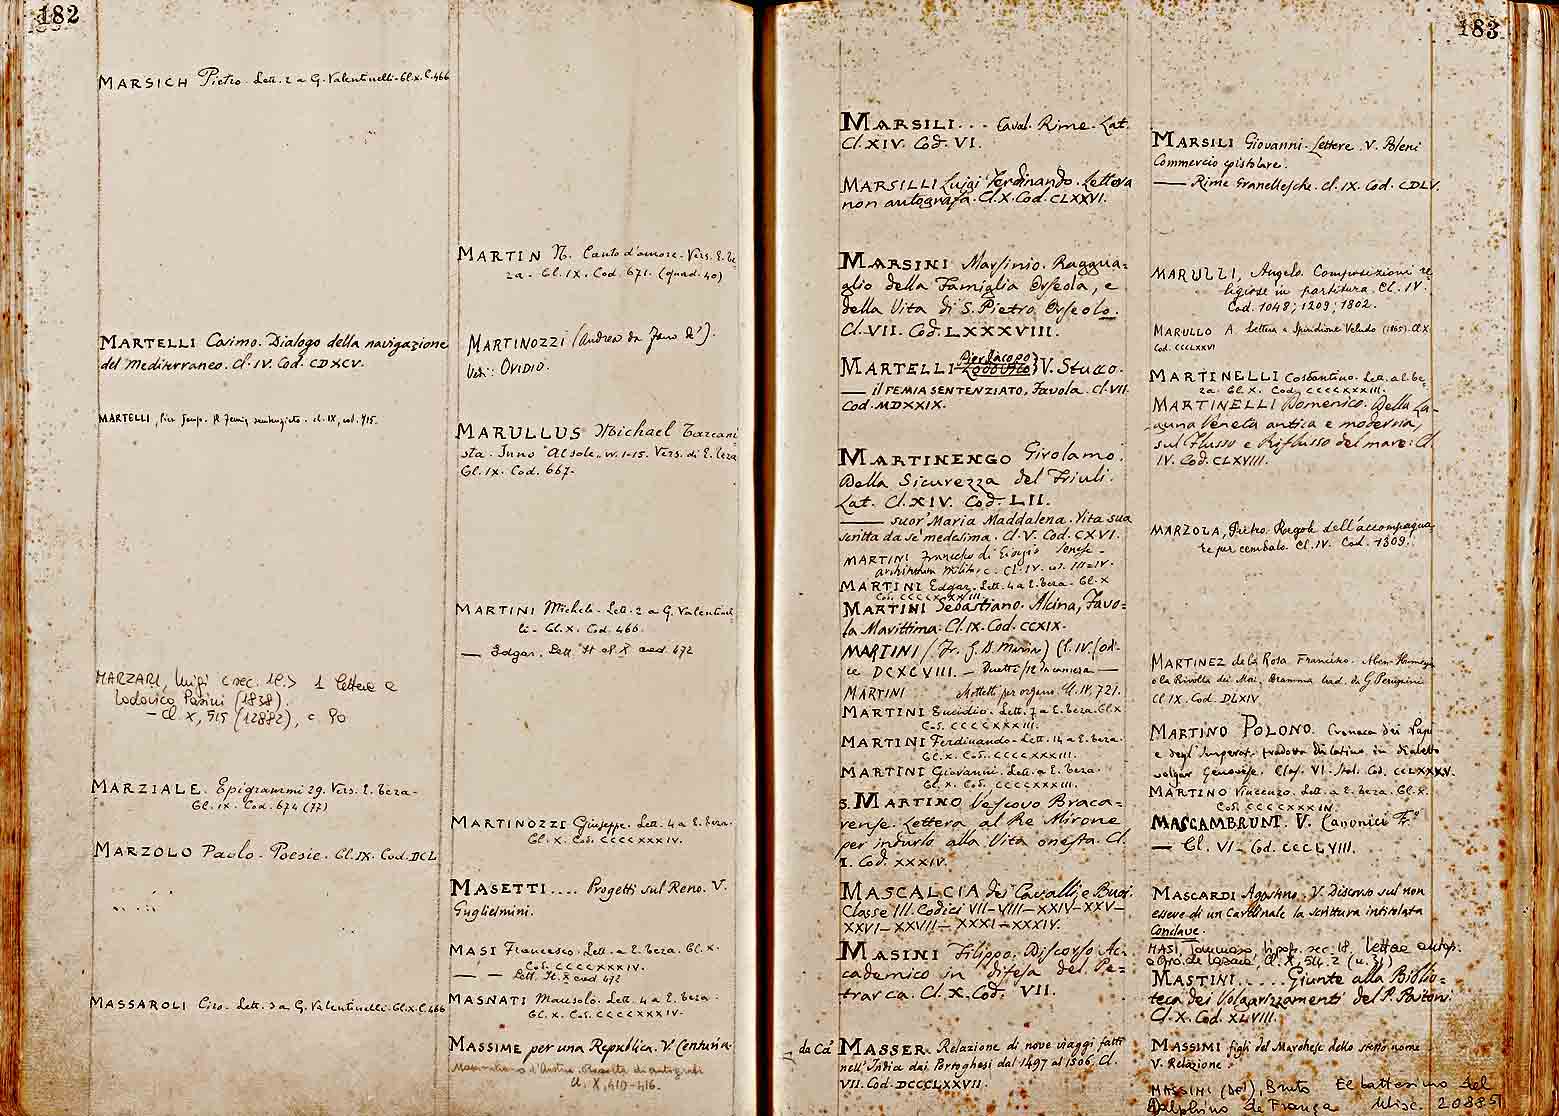 182
MARSICH Pietro. Lett. 2 a G. Valentinelli. Cl. X. C. 466
MARTELLI Cosimo. Dialogo della navigazione
del Mediterraneo. Cl. IV. Cod. CDXCV.
MARTELLI, Pier Jacop. Il Femia sentenziato. cl. IX, cod. 415.
MARZARI, Luigi (sec. 19.) 1 lettera a
Lodovico Pasini (1838).
— Cl. X, 515 (12882), c 90
MARZIALE. Epigrammi 29. Vers. E. Teza.
Cl. IX. Cod. 674 (77)
MARZOLO Paolo. Poesie. Cl. IX. Cod. DCL
MASSAROLI Ciro. Lett. 3 a G. Valentinelli. Cl. X. C. 466
MARTIN N. Canto d'amore. Vers. E. Te-
za. Cl. IX. Cod. 671. (quad. 40)
MARTINOZZI (Andrea da Fano de').
Vedi: OVIDIO.
MARULLUS Michael Tarcani
sta. Inno "Al sole" vv. 1-15. Vers. di E. Teza
Cl. IX. Cod. 667.
MARTINI Michele. Lett. 2 a G. Valentinel-
li. Cl. X. Cod. 466.
— Edgar. Lett. It cl X cod. 472
MARTINOZZI Giuseppe. Lett. 4 a E. Teza.
Cl. X. Cod. CCCCXXXIV.
MASETTI .... Progetti sul Reno. V.
Guglielmini.
MASI Francesco. Lett. a E. Teza. Cl. X.
Cod. CCCCXXXIV.
— — Lett. It. X cod 472
MASNATI Mausolo. Lett. 4 a E. Teza.
Cl. X. Cod. CCCCXXXIV.
MASSIME per una Repubblica. V. Centuria.
Massimiliano d'Austria. Raccolta di autografi
Cl. X, 410-416.
183
MARSILI ... Caval. Rime. Lat.
Cl. XIV. Cod. VI.
MARSILLI Luigi Ferdinando. Lettera
non autografa. Cl. X. Cod. CLXXVI.
MARSINI Marsinio. Raggua=
glio della Famiglia Orseola, e
della Vita di S. Pietro Orseolo.
Cl. VII. Cod. LXXXVIII.
MARTELLI Pier Jacopo Lodovico V. Stucco.
— il FEMIA SENTENZIATO, Favola. Cl. VII.
Cod. MDXXIX.
MARTINENGO Girolamo.
Della Sicurezza del Friuli.
Lat. Cl. XIV. Cod. LII.
— suor Maria Maddalena. Vita sua
scritta da se medesima. Cl. V. Cod. CXVI.
MARTINI Francesco di Giorgio Senese
architettura Militare. Cl. IV. n.i III=IV.
MARTINI Edgar. Lett. 4 a E. Teza. Cl. X
Cod. CCCCXXXIII.
MARTINI Sebastiano. Alcina, Favo=
la Marittima. Cl. IX. Cod. CCXIX.
MARTINI (Fr. G. B. Maria) Cl. IV. Codi-
ce DCXCVIII. — Duetti per camera —
MARTINI Mottetti per organo. Cl. IV, 721.
MARTINI Emidio. Lett. 7 a E. Teza. Cl. X
Cod. CCCCXXXIII.
MARTINI Ferdinando. Lett. 14 a E. Teza.
Cl. X. Cod. CCCCXXXIII.
MARTINI Giovanni. Lett. a E. Teza.
Cl. X. Cod. CCCCXXXIII.
S. MARTINO Vescovo Braca=
rense. Lettera al Re Mirone
per indurlo alla Vita onesta. Cl.
I. Cod. XXXIV.
MASCALCIA dei Cavalli, e Buoi.
Classe III. Codici VII–VIII–XXIV–XXV–
XXVI–XXVII–XXXI–XXXIV.
MASINI Filippo. Discorso Ac=
cademico in difesa del Pe=
trarca. Cl. X. Cod. VII.
da Cà MASSER. Relazione di nove viaggi fatti
nell'India dai Portoghesi dal 1497 al 1506. Cl.
VII. Cod. DCCCLXXVII.
MARSILI Giovanni. Lettere. V. Poleni
Commercio epistolare.
— Rime Granellesche. Cl. IX. Cod. CDLV.
MARUZZI, Angelo. Composizioni re-
ligiose in partitura. Cl. IV.
Cod. 1048; 1209; 1802.
MARULLO A. Lettera a Spiridione Veludo (1865). Cl. X
Cod. CCCLXXVI
MARTINELLI Costantino. Lett. a E. Te-
za. Cl. X. Cod. CCCCXXXIII.
MARTINELLI Domenico. Della La-
guna Veneta antica e moderna,
sul Flusso e Riflusso del mare: Cl.
IV. Cod. CLXVIII.
MARZOLA, Pietro. Regole dell'accompagna-
re per cembalo. Cl. IV. Cod. 1309.
MARTINEZ de la Rosa Francisco. Aben-Humeya
o la Rivolta dei Mori, Dramma trad. da G. Perugini
Cl IX. Cod. DLXIV
MARTINO POLONO. Cronaca dei Papi
e degl'Imperat. tradotta di latino in dialetto
volgar Genovese. Clas. VI. Ital. Cod. CCLXXXV.
MARTINO Vincenzo. Lett. a E. Teza. Cl. X.
Cod. CCCCXXXIV.
MASCAMBRUNI. V. Canonici Fr.º
— Cl. VI – Cod. CCCLVIII.
MASCARDI Agostino. V. Discorso sul non
essere di un Cardinale la scrittura intitolata
Conclave.
MASI Tommaso, tipogr. sec. 18. lettera autogr.
Cl. X, 514. 2 (n. 31)
MASTINI..... Giunte alla Biblio=
teca dei Volgarizzamenti del P. Paitoni
Cl. X. Cod. XLVIII.
MASSIMI figli del Marchese dello stesso nome
V. Relazione.
MASSINI (Dei), Bruto El battesimo del
Dalphino de França Misc. 20885